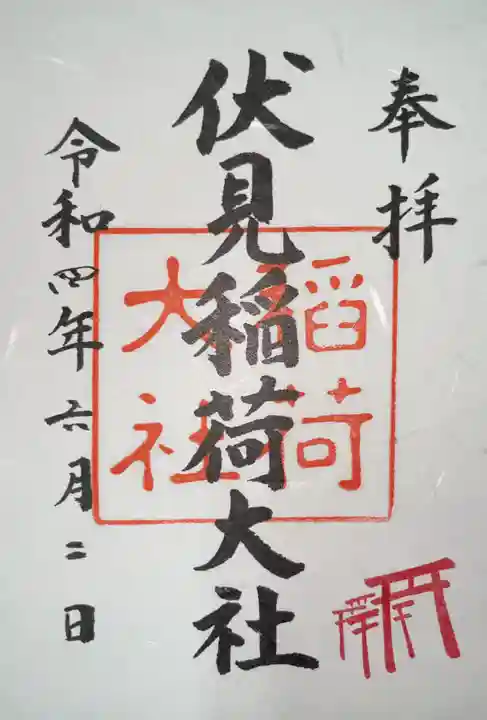 奉拝
伏見稲荷大社
令和四年六月二日
稲荷
大社